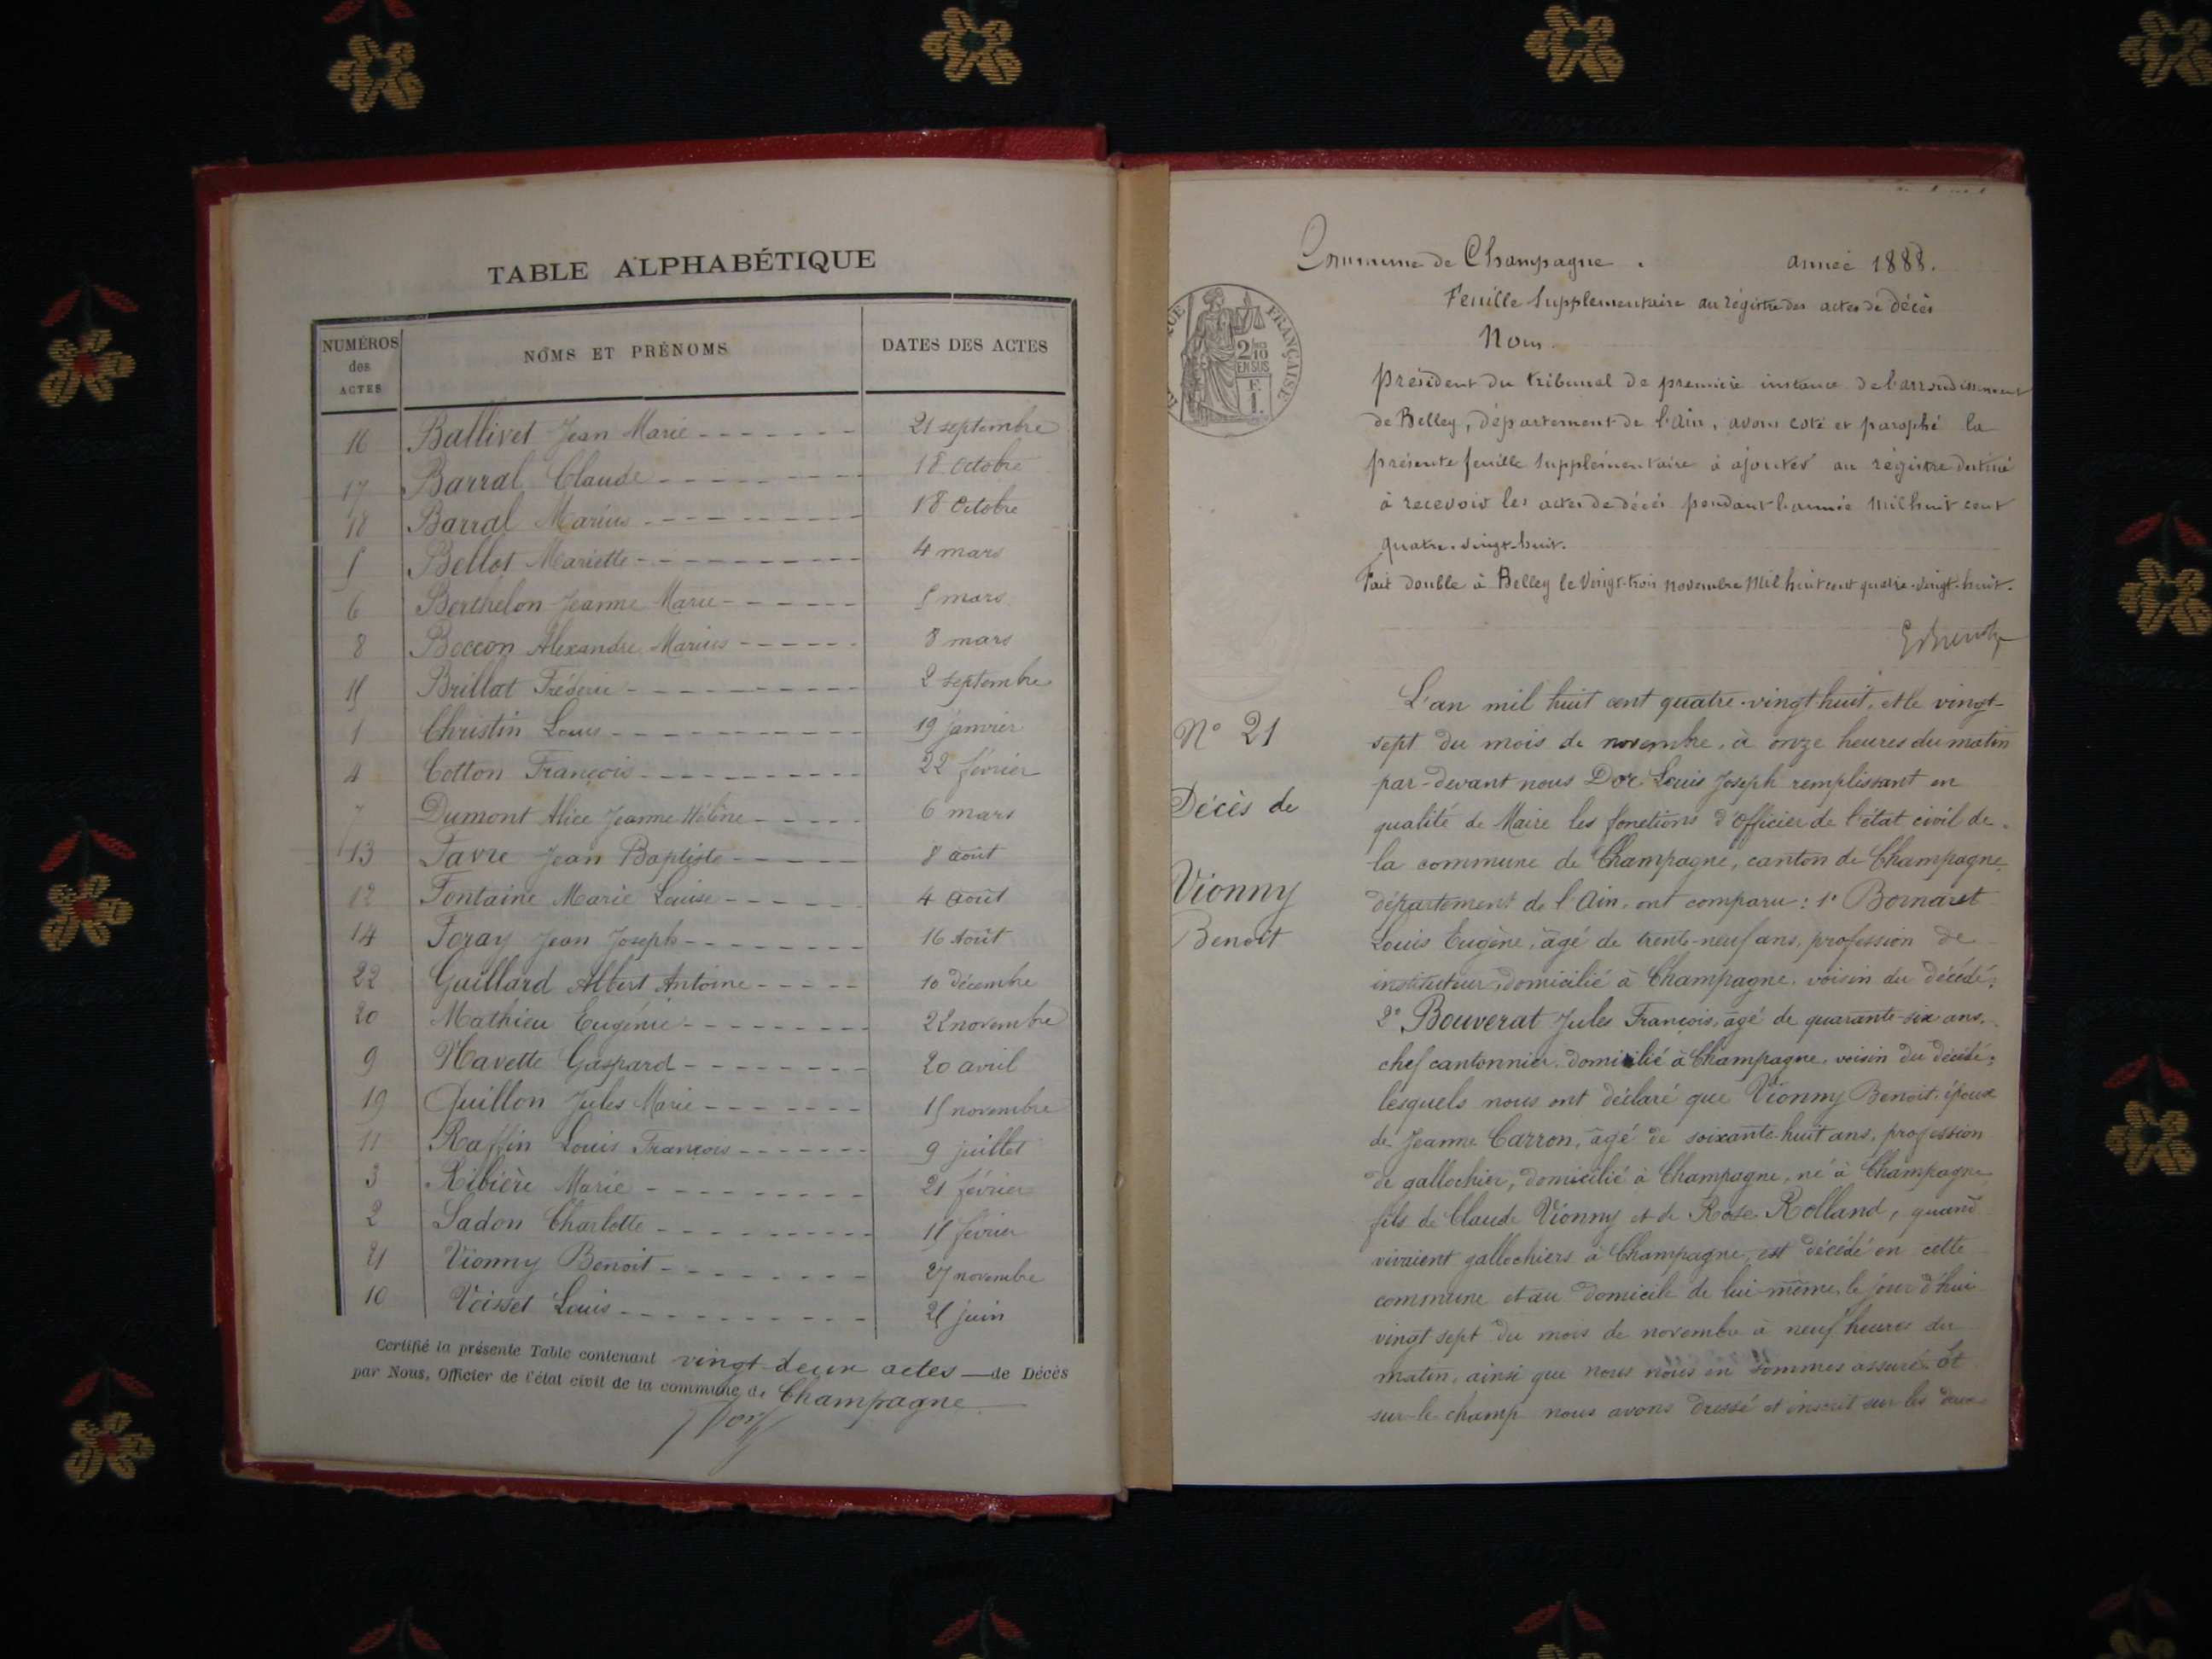 TABLE ALPHABÉTIQUE
NUMÉROS des ACTES NOMS ET PRÉNOMS DATES DES ACTES
16 Ballivet Jean Marie 21 septembre
17 Barral Claude 18 Octobre
18 Barral Marius 18 Octobre
5 Bellot Mariette 4 mars
6 Berthelon Jeanne Marie 5 mars
8 Boccon Alexandre Marius 8 mars
15 Brillat Fréderic 2 septembre
1 Christin Louis 19 janvier
4 Cotton François 22 février
7 Dumont Alice Jeanne Hélène 6 mars
13 Favre Jean Baptiste 8 août
12 Fontaine Marie Louise 4 août
14 Foray Jean Joseph 16 Août
22 Guillard Albert Antoine 10 décembre
20 Mathieu Eugénie 22 novembre
9 Navette Gaspard 20 avril
19 Quillon Jules Marie 15 novembre
11 Raffin Louis François 9 juillet
3 Ribière Marie 21 février
2 Sadon Charlotte 11 février
21 Vionny Benoit 27 novembre
10 Voisset Louis 21 juin
Certifié la présente Table contenant vingt-deux actes de Décès
par Nous, Officier de l'état civil de la commune de Champagne
Dor
Commune de Champagne. année 1888.
RÉPUBLIQUE FRANÇAISE
2/10
EN SUS
F.
1.
Feuille Supplementaire au régistre des actes de décès
Nous
président du tribunal de première instance de l'arrondissement
de Belley, département de l'Ain, avons coté et paraphé la
présente feuille Supplémentaire à ajouter au régistre destiné
à recevoir les actes de décès pendant l'année Mil huit cent
quatre-vingt-huit.
Fait double à Belley le Vingt-trois novembre Mil huit cent quatre-vingt-huit.
N° 21
Décès de
Vionny
Benoit
L'an mil huit cent quatre-vingt-huit, et le vingt-
sept du mois de novembre, à onze heures du matin
par-devant nous Dor Louis Joseph remplissant en
qualité de Maire les fonctions d'Officier de l'état civil de
la commune de Champagne, canton de Champagne,
département de l'Ain, ont comparu : 1° Bornaret
Louis Eugène, âgé de trente-neuf ans, profession de
instituteur, domicilié à Champagne, voisin du décédé;
2° Bouverat Jules François, âgé de quarante-six ans,
chef cantonnier, domicilié à Champagne, voisin du décédé;
lesquels nous ont déclaré que Vionny Benoit, époux
de Jeanne Carron, âgé de soixante-huit ans, profession
de gallochier, domicilié à Champagne, né à Champagne,
fils de Claude Vionny et de Rose Rolland, quand
vivaient gallochiers à Champagne, est décédé en cette
commune et au domicile de lui-même, le jour d'hui
vingt sept du mois de novembre à neuf heures du
matin, ainsi que nous nous en sommes assuré. Et
sur-le-champ nous avons dressé et inscrit sur les deux